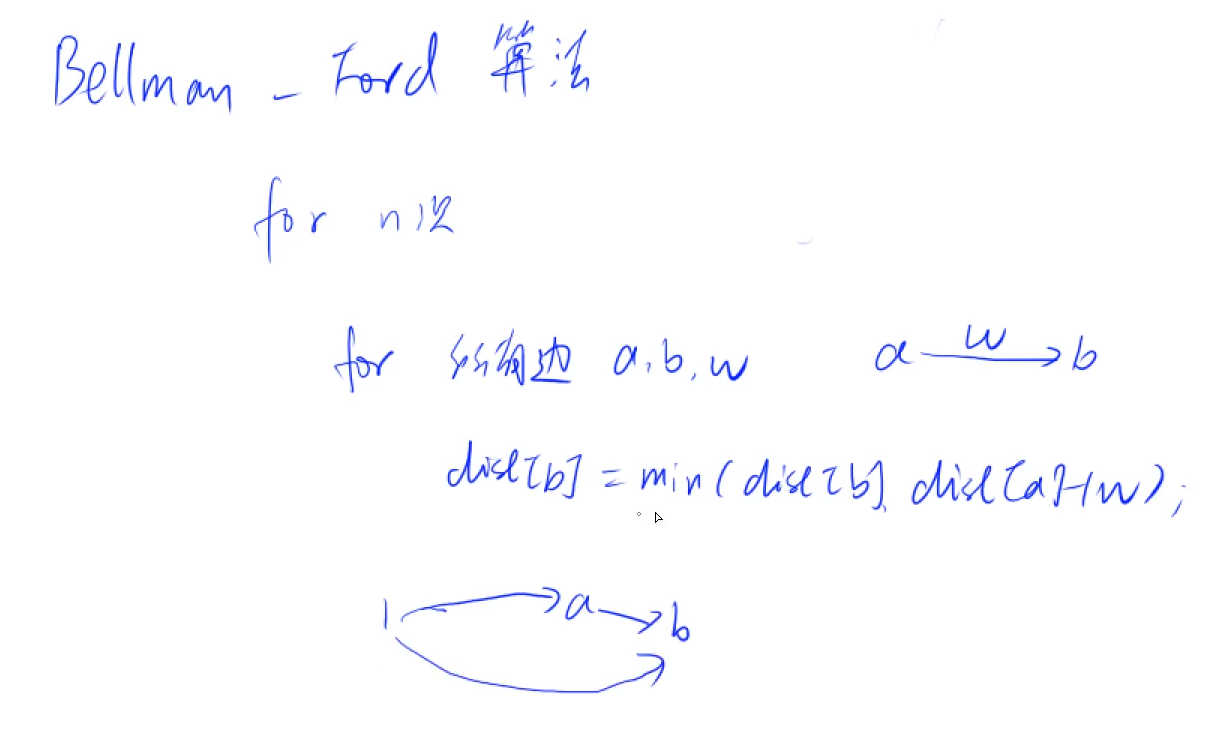 Bellman - Ford 算法
for n次
for 所有边 a,b,w
a w b
dist[b] = min(dist[b], dist[a]+w);
1 a b